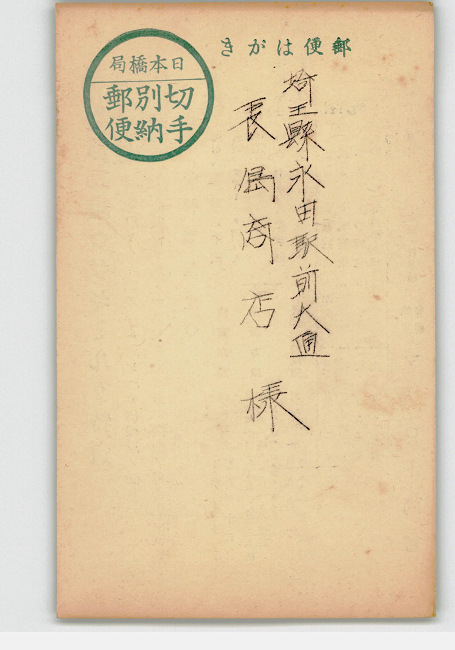 郵便はがき
日本橋局
切手
別納
郵便
埼玉縣永田駅前大通
長岡商店様